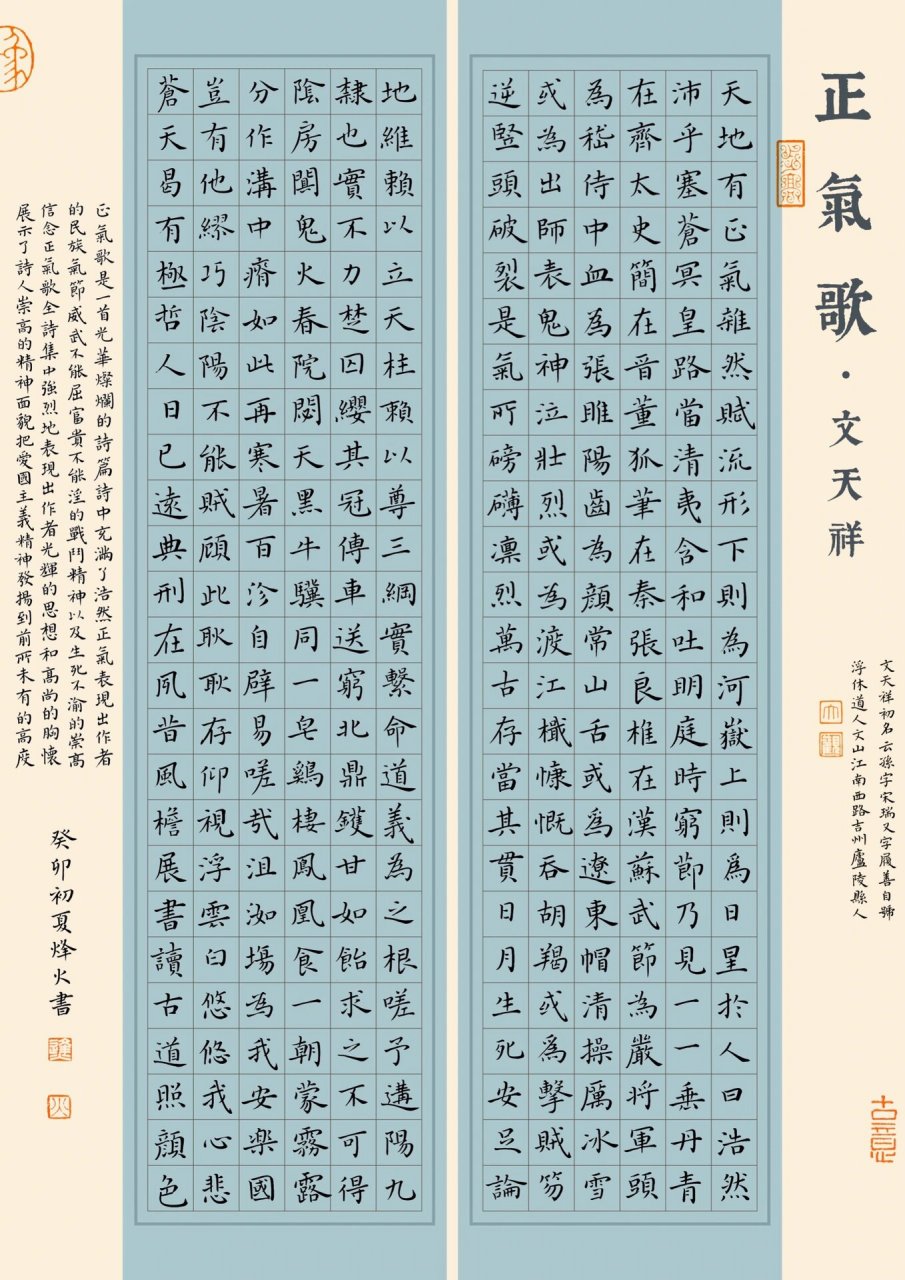 正氣歌·文天祥
文天祥初名云孫字宋瑞又字履善自號
浮休道人文山江南西路吉州廬陵縣人
天地有正氣雜然賦流形下則為河嶽上則爲日星於人曰浩然
沛乎塞蒼冥皇路當清夷含和吐明庭時窮節乃見一一垂丹青
在齊太史簡在晉董狐筆在秦張良椎在漢蘇武節為嚴將軍頭
為嵇侍中血為張睢陽齒為顏常山舌或爲遼東帽清操厲冰雪
或為出師表鬼神泣壯烈或為渡江檝慷慨吞胡羯或爲擊賊笏
逆豎頭破裂是氣所磅礴凜烈萬古存當其貫日月生死安足論
地維賴以立天柱賴以尊三綱實繫命道義為之根嗟予遘陽九
隸也實不力楚囚纓其冠傳車送窮北鼎鑊甘如飴求之不可得
陰房闃鬼火春院閟天黑牛驥同一皂鷄棲鳳凰食一朝蒙霧露
分作溝中瘠如此再寒暑百沴自辟易嗟哉沮洳場為我安樂國
豈有他繆巧陰陽不能賊顧此耿耿存仰視浮雲白悠悠我心悲
蒼天曷有極哲人日已遠典刑在夙昔風檐展書讀古道照顏色
正氣歌是一首光華燦爛的詩篇詩中充滿了浩然正氣表現出作者
的民族氣節威武不能屈富貴不能淫的戰鬥精神以及生死不渝的崇高
信念正氣歌全詩集中強烈地表現出作者光輝的思想和高尚的胸懷
展示了詩人崇高的精神面貌把愛國主義精神發揚到前所未有的高度
癸卯初夏烽火書
古意